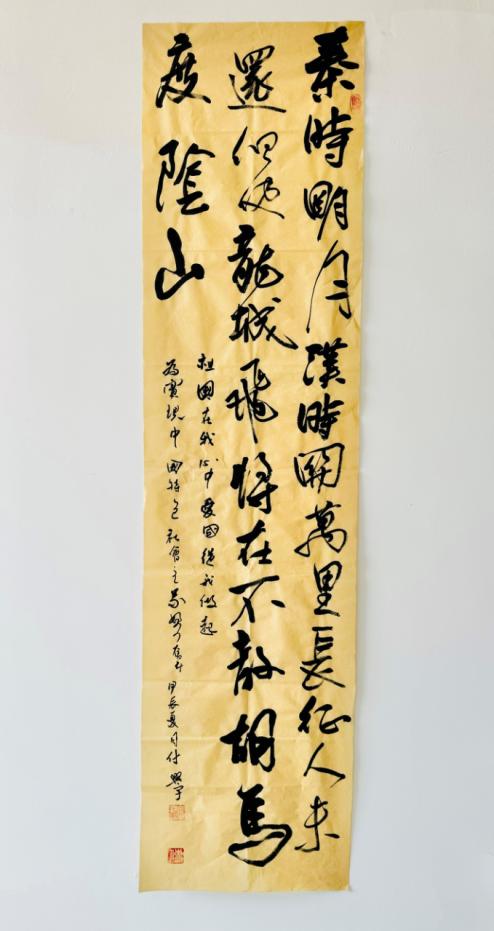 秦時明月漢時關萬里長征人未
還但使龍城飛將在不教胡馬
度陰山
祖國在我心中愛國從我做起
為實現中國特色社會主義努力奮鬥 甲辰夏月付